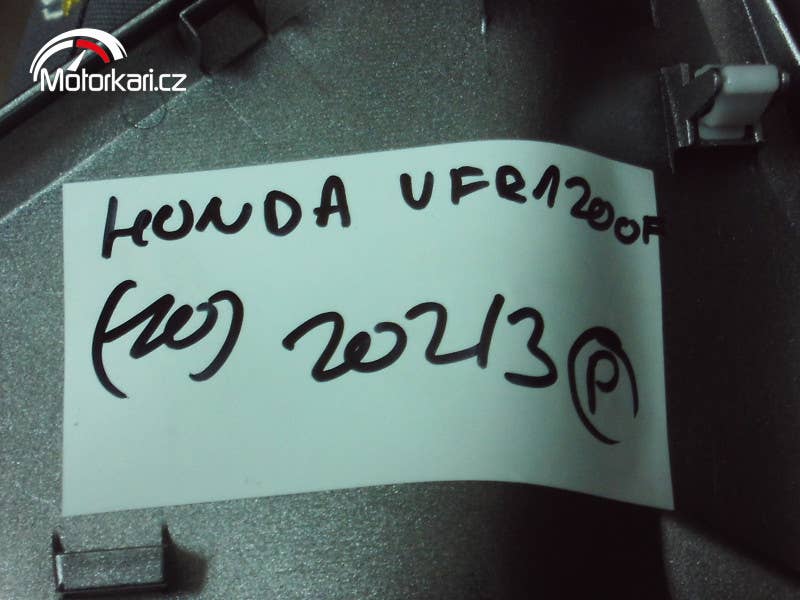 Motorkari.cz
HONDA VFR1200F
(10) 20213 P